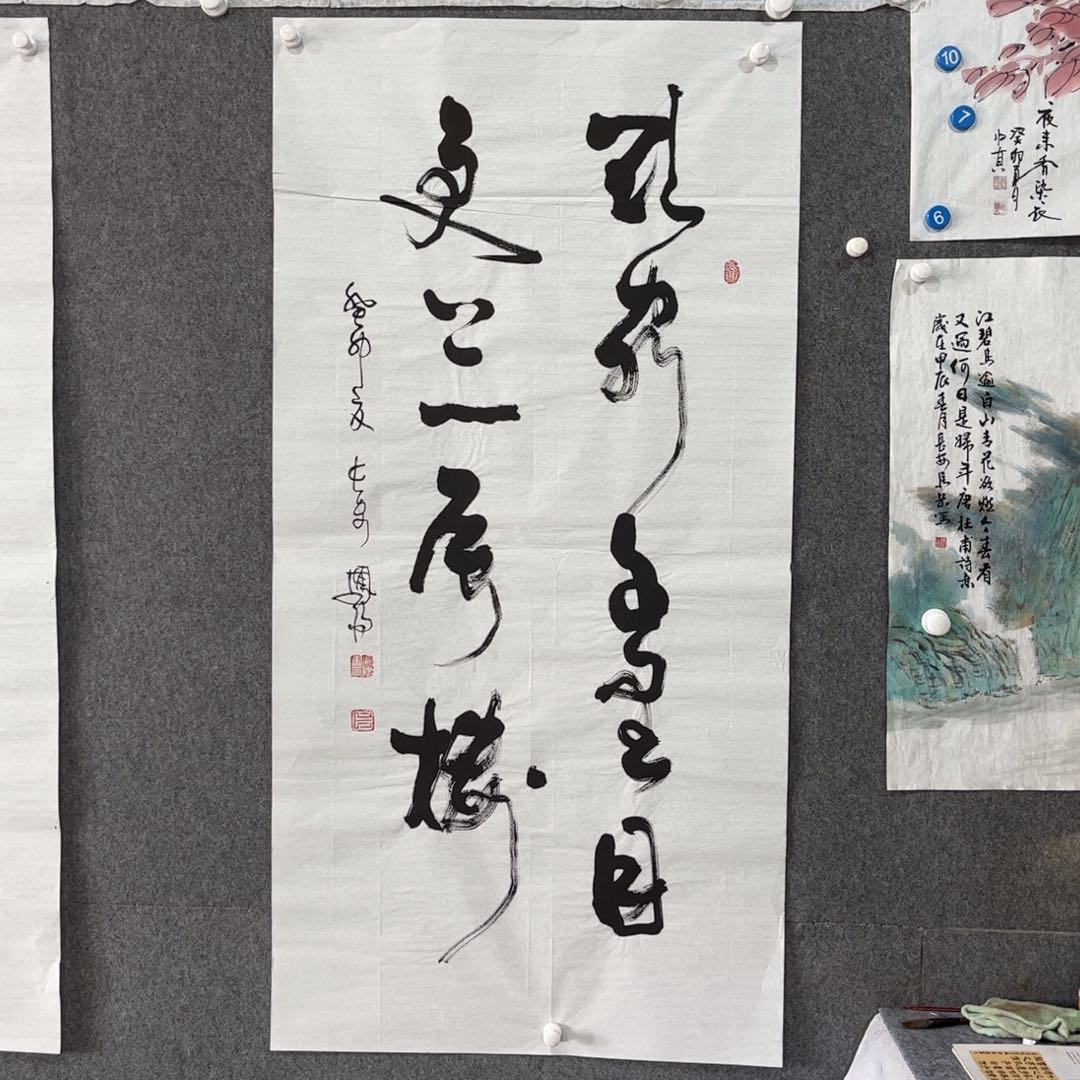 欲穷千里目
更上一层楼
癸卯夏 长安
夜来香染衣
癸卯夏月
江碧鸟逾白山青花欲燃今春看
又过何日是归年唐杜甫诗意
岁在甲辰春月长安
10
7
6